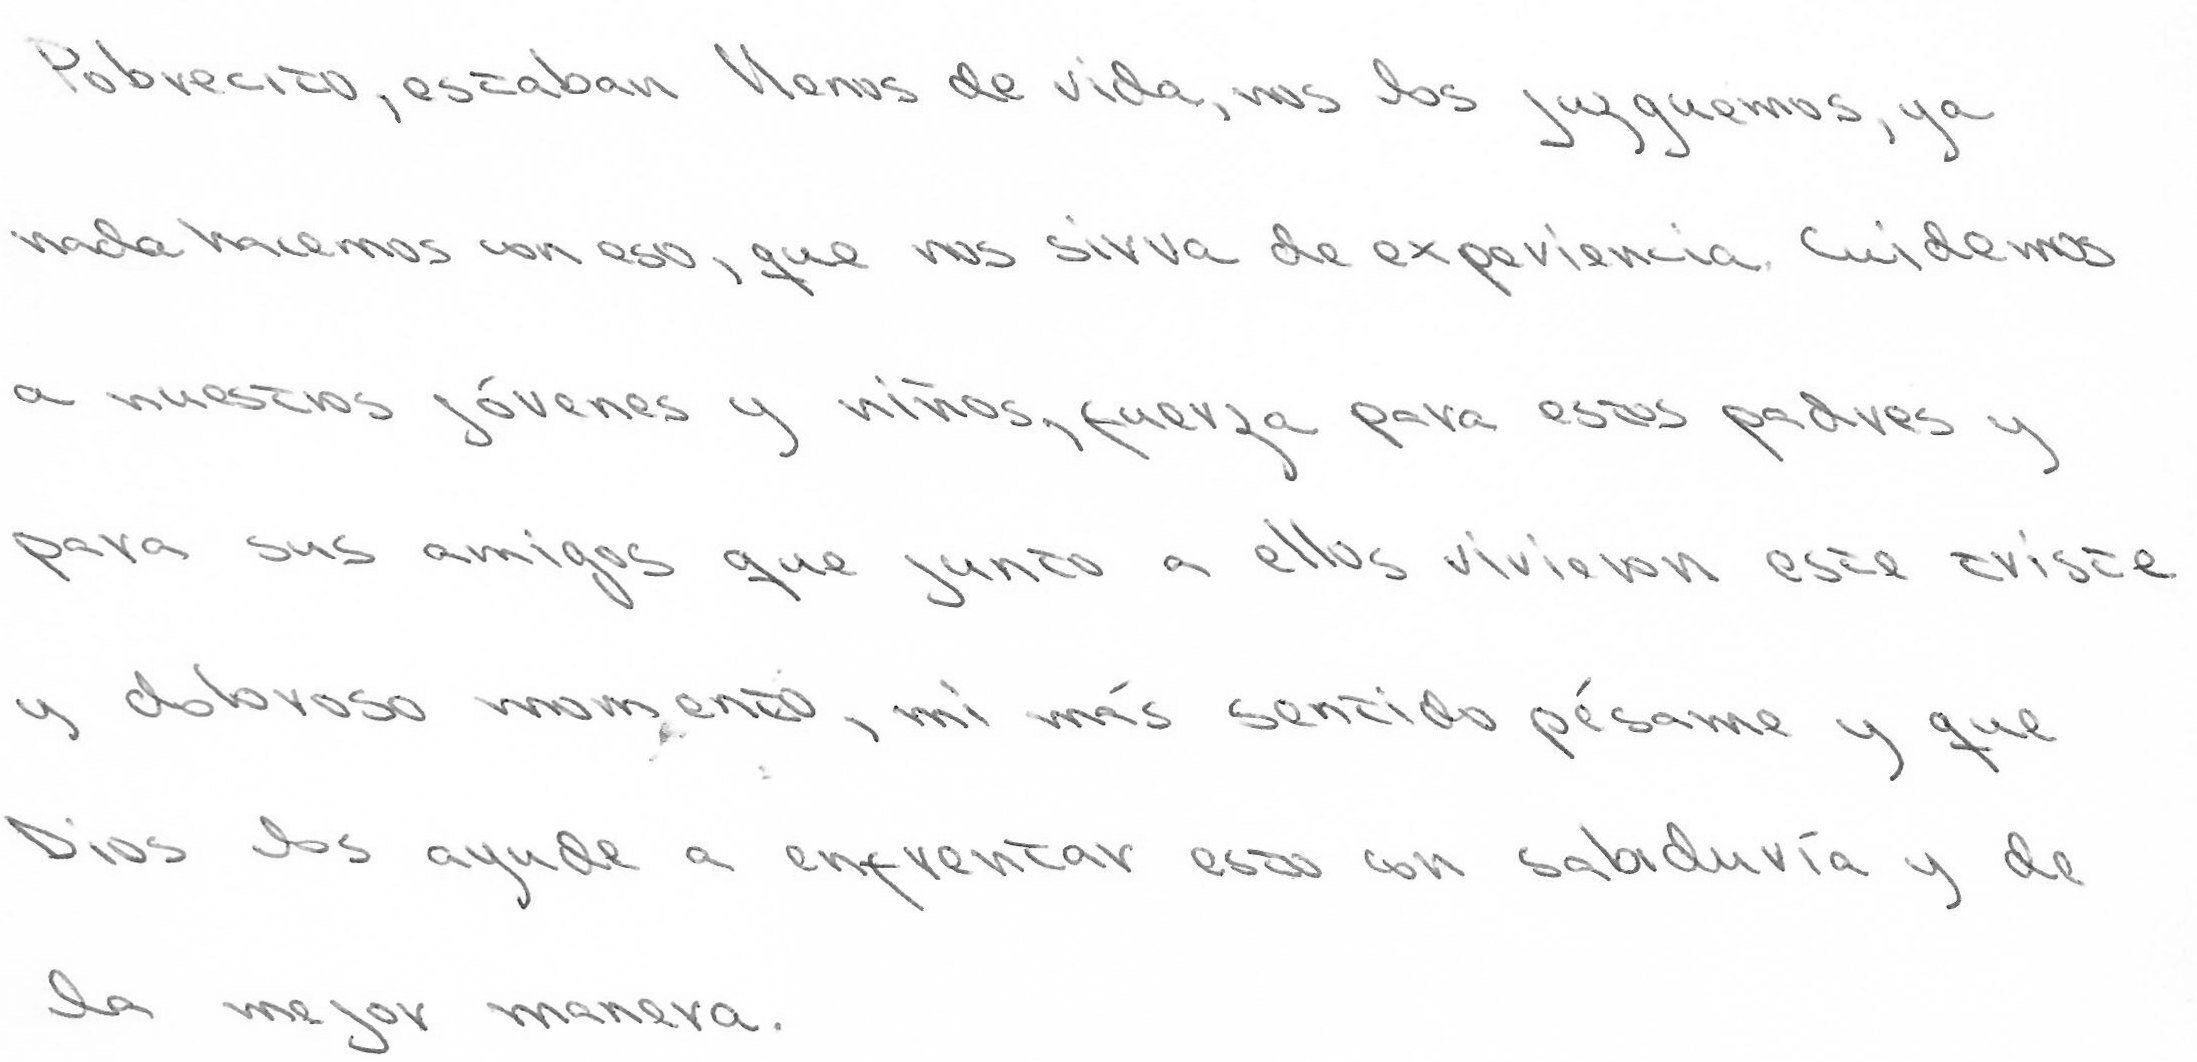 Pobrecito, estaban llenos de vida, nos los juzguemos, ya
nada hacemos con eso, que nos sirva de experiencia. Cuidemos
a nuestros jóvenes y niños, fuerza para estos padres y
para sus amigos que junto a ellos vivieron este triste
y doloroso momento, mi más sentido pésame y que
Dios los ayude a enfrentar esto con sabiduría y de
la mejor manera.